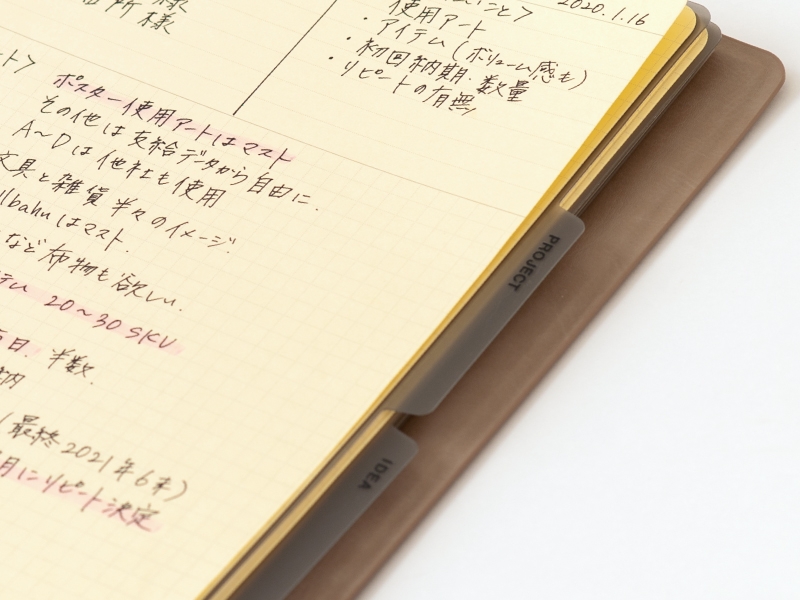 様
様
2020.1.16
いこと>
使用アート
・アイテム(ボリューム感も)
・初回納期・数量
・リピートの有無
ート>
ポスター使用アートはマスト
その他は支給データから自由に.
A〜Dは他社も使用
文具と雑貨半々のイメージ.
lbahuはマスト.
など布物も欲しい.
テム 20〜30 SKU
5日. 半数.
納
(最終2021年6末)
月にリピート決定
PROJECT
IDEA